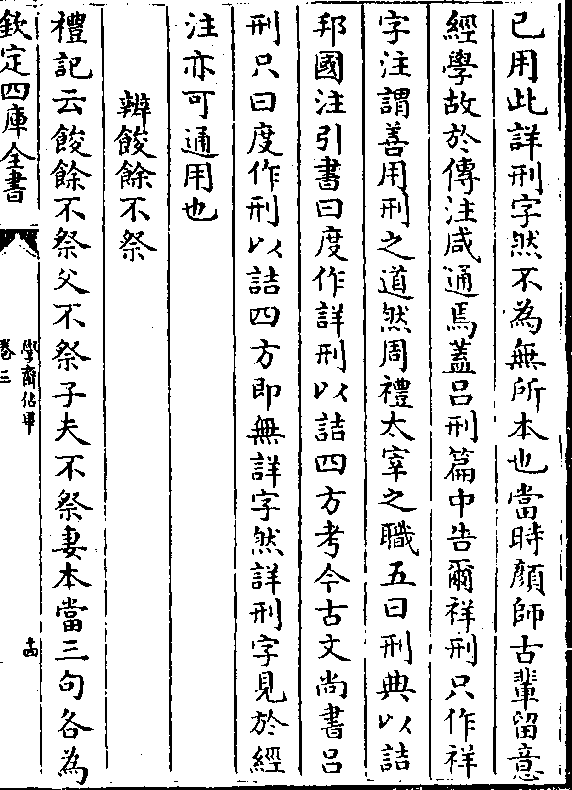 已用此詳刑字然不為無所本也當時顏師古輩留意
經學故於傳注咸通焉蓋呂刑篇中告爾祥刑只作祥
字注謂善用刑之道然周禮太宰之職五曰刑典以詰
邦國注引書曰度作詳刑以詰四方考今古文尚書呂
刑只曰度作刑以詰四方即無詳字然詳刑字見於經
注亦可通用也
辨餕餘不祭
禮記云餕餘不祭父不祭子夫不祭妻本當三句各為
欽定四庫全書
學齋佔畢
卷三
十四